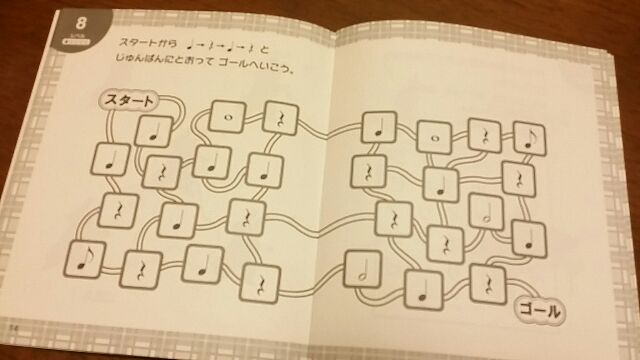 8
レベル
スタートから ♩→𝄽→♩→𝄽 と
じゅんばんにとおって ゴールへいこう。
スタート
ゴール
14